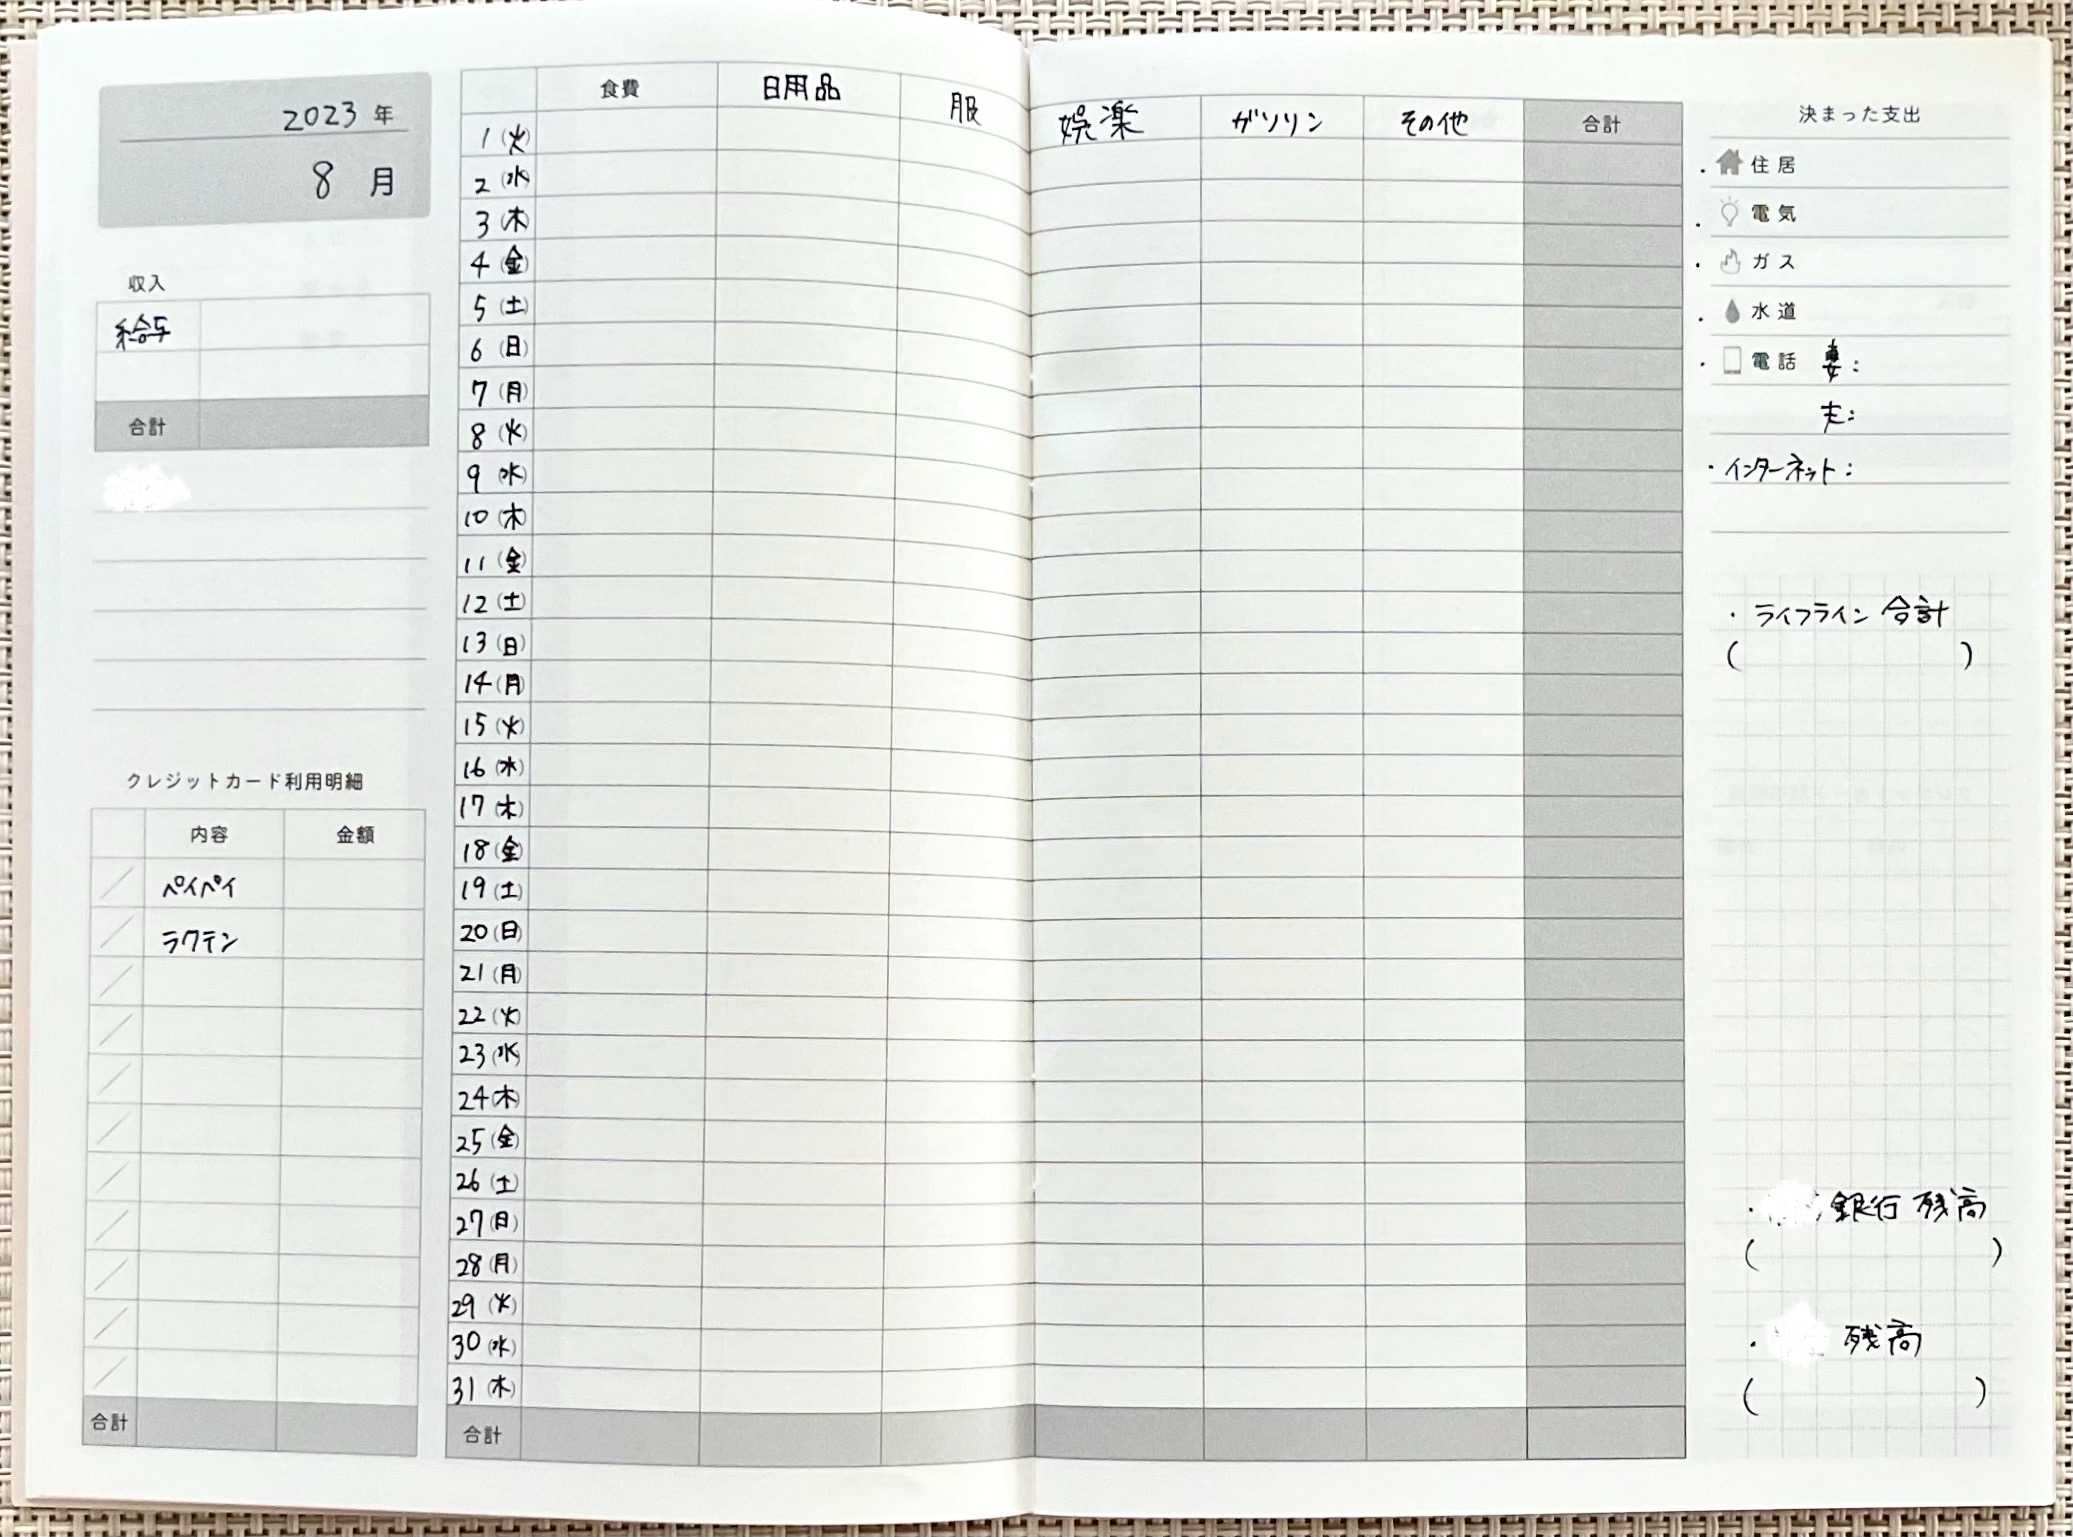 2023 年
8 月
収入
給与
合計
クレジットカード利用明細
内容 金額
ペイペイ
ラクテン
合計
食費 日用品 服 娯楽 ガソリン その他 合計
1 (火)
2 (水)
3 (木)
4 (金)
5 (土)
6 (日)
7 (月)
8 (火)
9 (水)
10 (木)
11 (金)
12 (土)
13 (日)
14 (月)
15 (火)
16 (水)
17 (木)
18 (金)
19 (土)
20 (日)
21 (月)
22 (火)
23 (水)
24 (木)
25 (金)
26 (土)
27 (日)
28 (月)
29 (火)
30 (水)
31 (木)
合計
決まった支出
・住居
・電気
・ガス
・水道
・電話 妻:
夫:
・インターネット:
・ライフライン 合計
( )
・ 銀行 残高
( )
・ 残高
( )